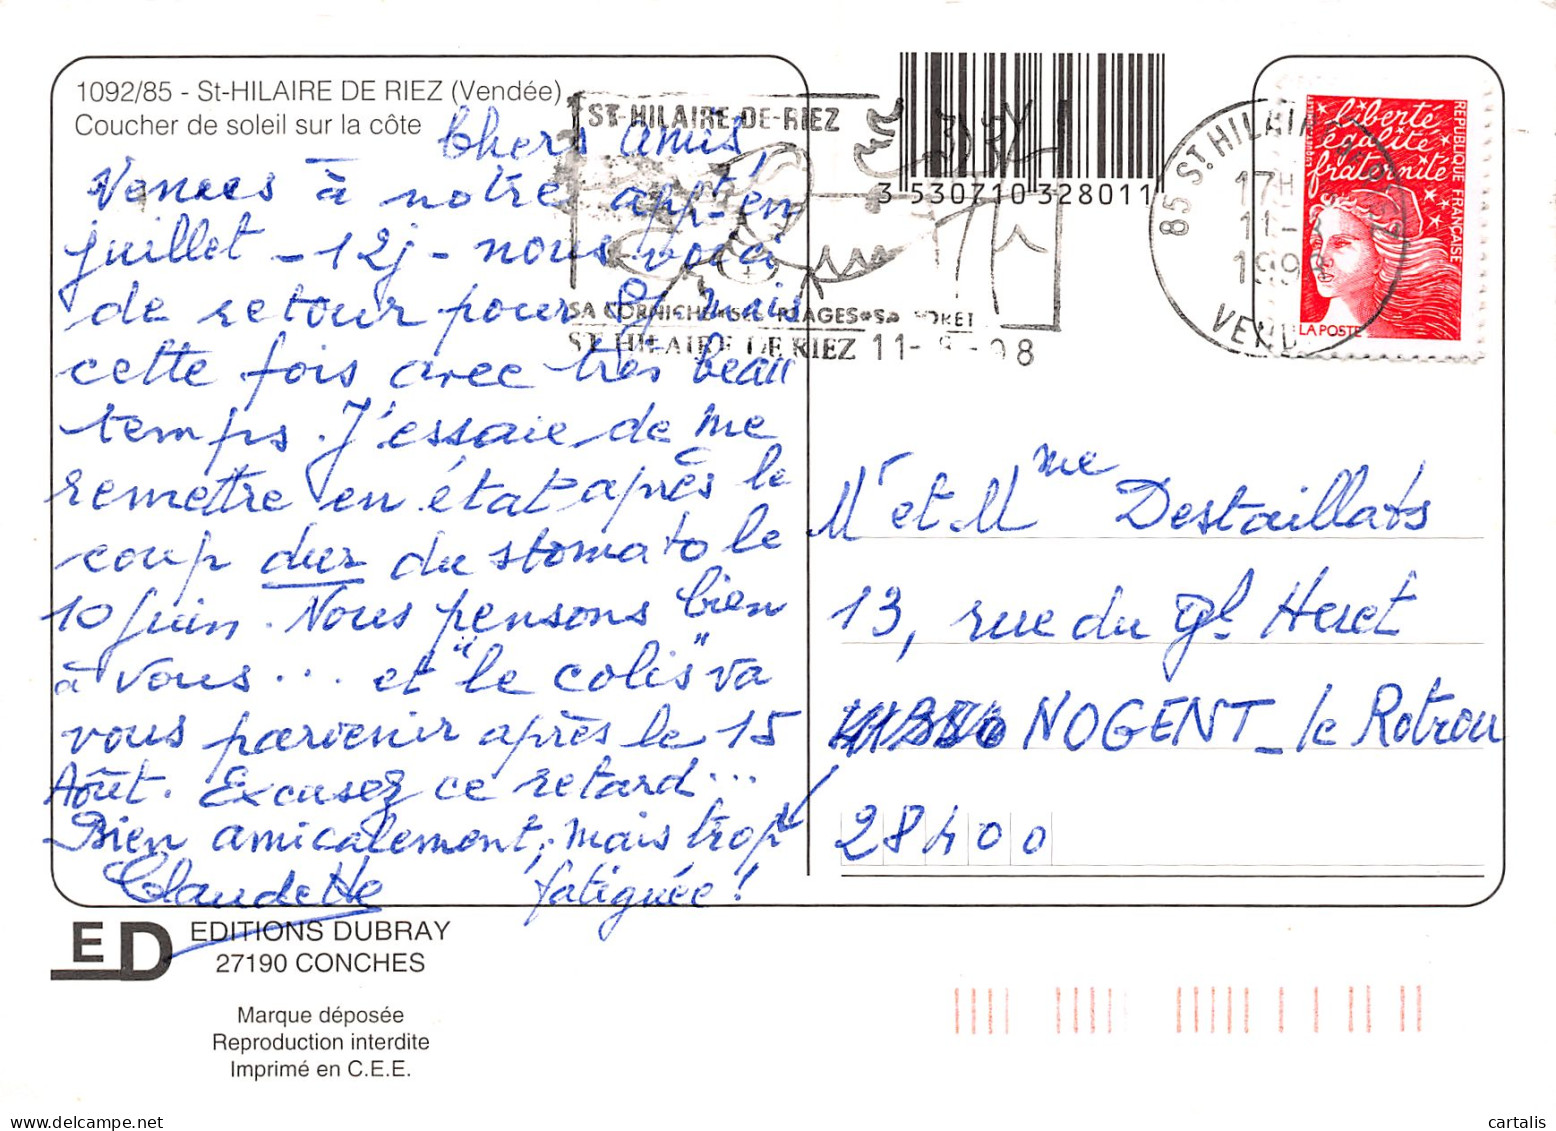 1092/85 - St-HILAIRE DE RIEZ (Vendée)
Coucher de soleil sur la côte
Chers amis,
Venus à notre appt en
juillet - 12j - nous voici
de retour pour 8j mais
cette fois avec très beau
temps. J'essaie de me
remettre en état après le
coup dur du stomato le
10 juin. Nous pensons bien
à vous... et "le colis" va
vous parvenir après le 15
Août. Excusez ce retard...
Bien amicalement, mais trop
fatiguée !
Claudette
EDITIONS DUBRAY
27190 CONCHES
ED
Marque déposée
Reproduction interdite
Imprimé en C.E.E.
ST-HILAIRE-DE-RIEZ
SA CORNICHE SES PLAGES SA FORET
ST HILAIRE DE RIEZ 11-8-98
3 530710 328011
85 ST. HILAIRE DE RIEZ
17H
11-8
1998
VENDEE
liberté
égalité
fraternité
REPUBLIQUE FRANÇAISE
LA POSTE
Mr et Mme Destaillats
13, rue du Gl Heret
NOGENT-le Rotrou
28400